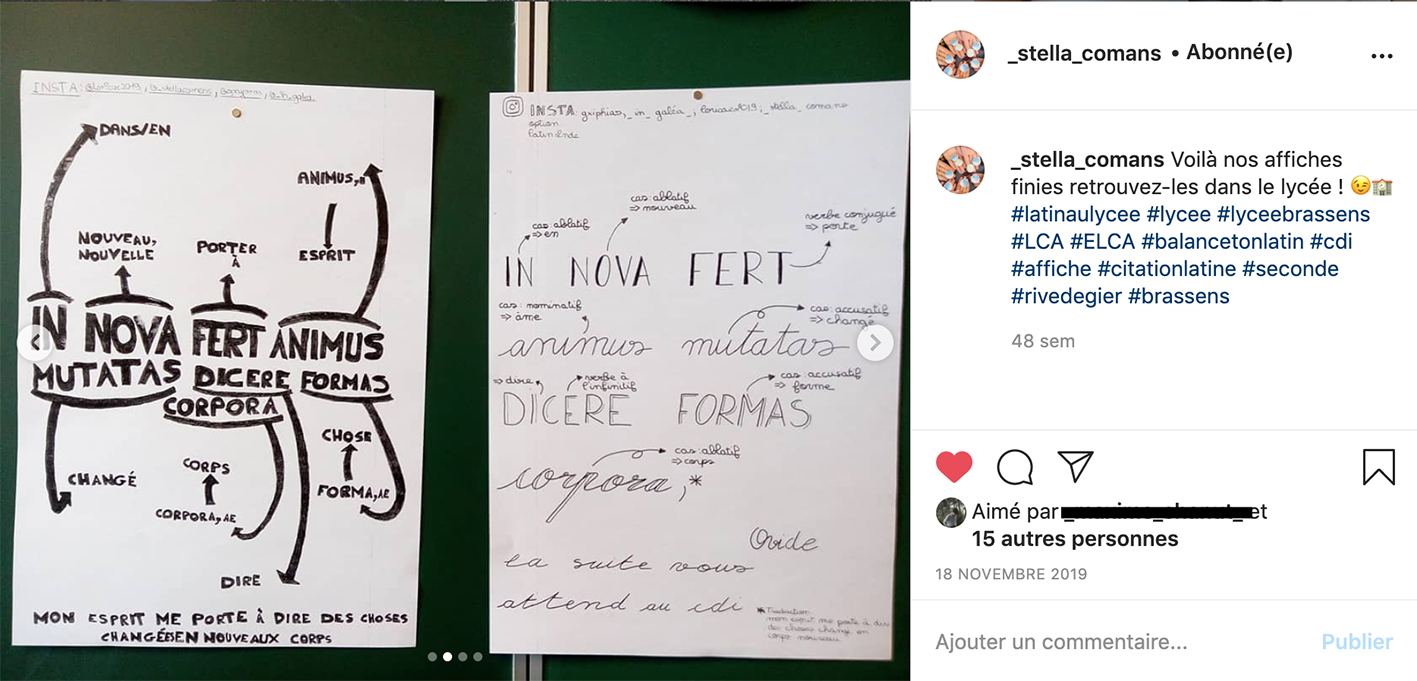 INSTA:
DANS/EN
ANIMUS,
ESPRIT
NOUVEAU,
NOUVELLE
PORTER
À
IN NOVA FERT ANIMUS
MUTATAS DICERE FORMAS
CORPORA
CHANGÉ
CORPS
CORPORA,AE
CHOSE
FORMA,AE
DIRE
MON ESPRIT ME PORTE À DIRE DES CHOSES
CHANGÉES EN NOUVEAUX CORPS
INSTA: griphias,_in_galéa_,
option
latin 2nde
cas: ablatif
=> en
cas: ablatif
=> nouveau
verbe conjugué
=> porte
IN NOVA FERT
cas: nominatif
=> âme
cas: accusatif
=> changé
animus mutatas
=> dire
verbe à
l'infinitif
cas: accusatif
=> forme
DICERE FORMAS
cas: ablatif
=> corps
corpora,*
Ovide
la suite vous
attend au cdi
*Traduction:
mon esprit me porte à dire
des choses changé en
corps nouveau
_stella_comans • Abonné(e)
_stella_comans Voilà nos affiches
finies retrouvez-les dans le lycée ! 😉🏫
#latinaulycee #lycee #lyceebrassens
#LCA #ELCA #balancetonlatin #cdi
#affiche #citationlatine #seconde
#rivedegier #brassens
48 sem
Aimé par et
15 autres personnes
18 NOVEMBRE 2019
Ajouter un commentaire... Publier